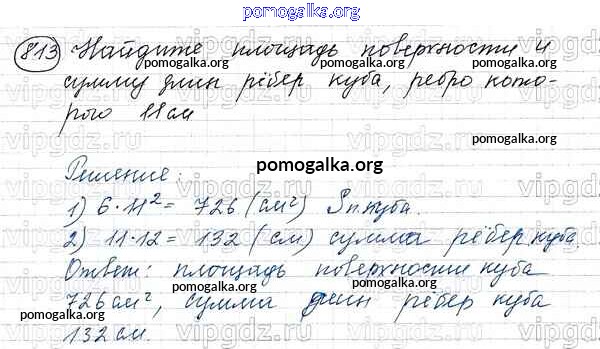 pomogalka.org
813 Найдите площадь поверхности и
pomogalka.org pomogalka.org pomogalka.org
сумму длин рёбер куба, ребро кото-
рого 11 см
pomogalka.org pomogalka.org
vipgdz.ru vipgdz.ru vipgdz.ru
Решение:
pomogalka.org
1) 6·11²= 726 (см²) Sп.куба.
pomogalka.org pomogalka.org
2) 11·12= 132 (см) сумма рёбер куба.
Ответ: площадь поверхности куба
pomogalka.org pomogalka.org
726 см², сумма длин рёбер куба
132 см.
pomogalka.org